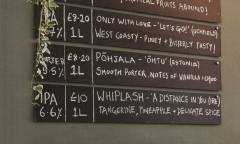 TROPICAL FRUITS ABOUND!
IPA £8.20 ONLY WITH LOVE - 'LET'S GO!' (UCKFIELD)
7% 1L WEST COAST - PINEY + BITTERLY TASTY!
PORTER £8.20 PÕHJALA - 'ÖHTU' (ESTONIA)
5.5% 1L SMOOTH PORTER, NOTES OF VANILLA +
IPA £10 WHIPLASH - 'A DISTANCE IN YOU (IRE)
6.6% 1L TANGERINE, PINEAPPLE + DELICATE SPICE